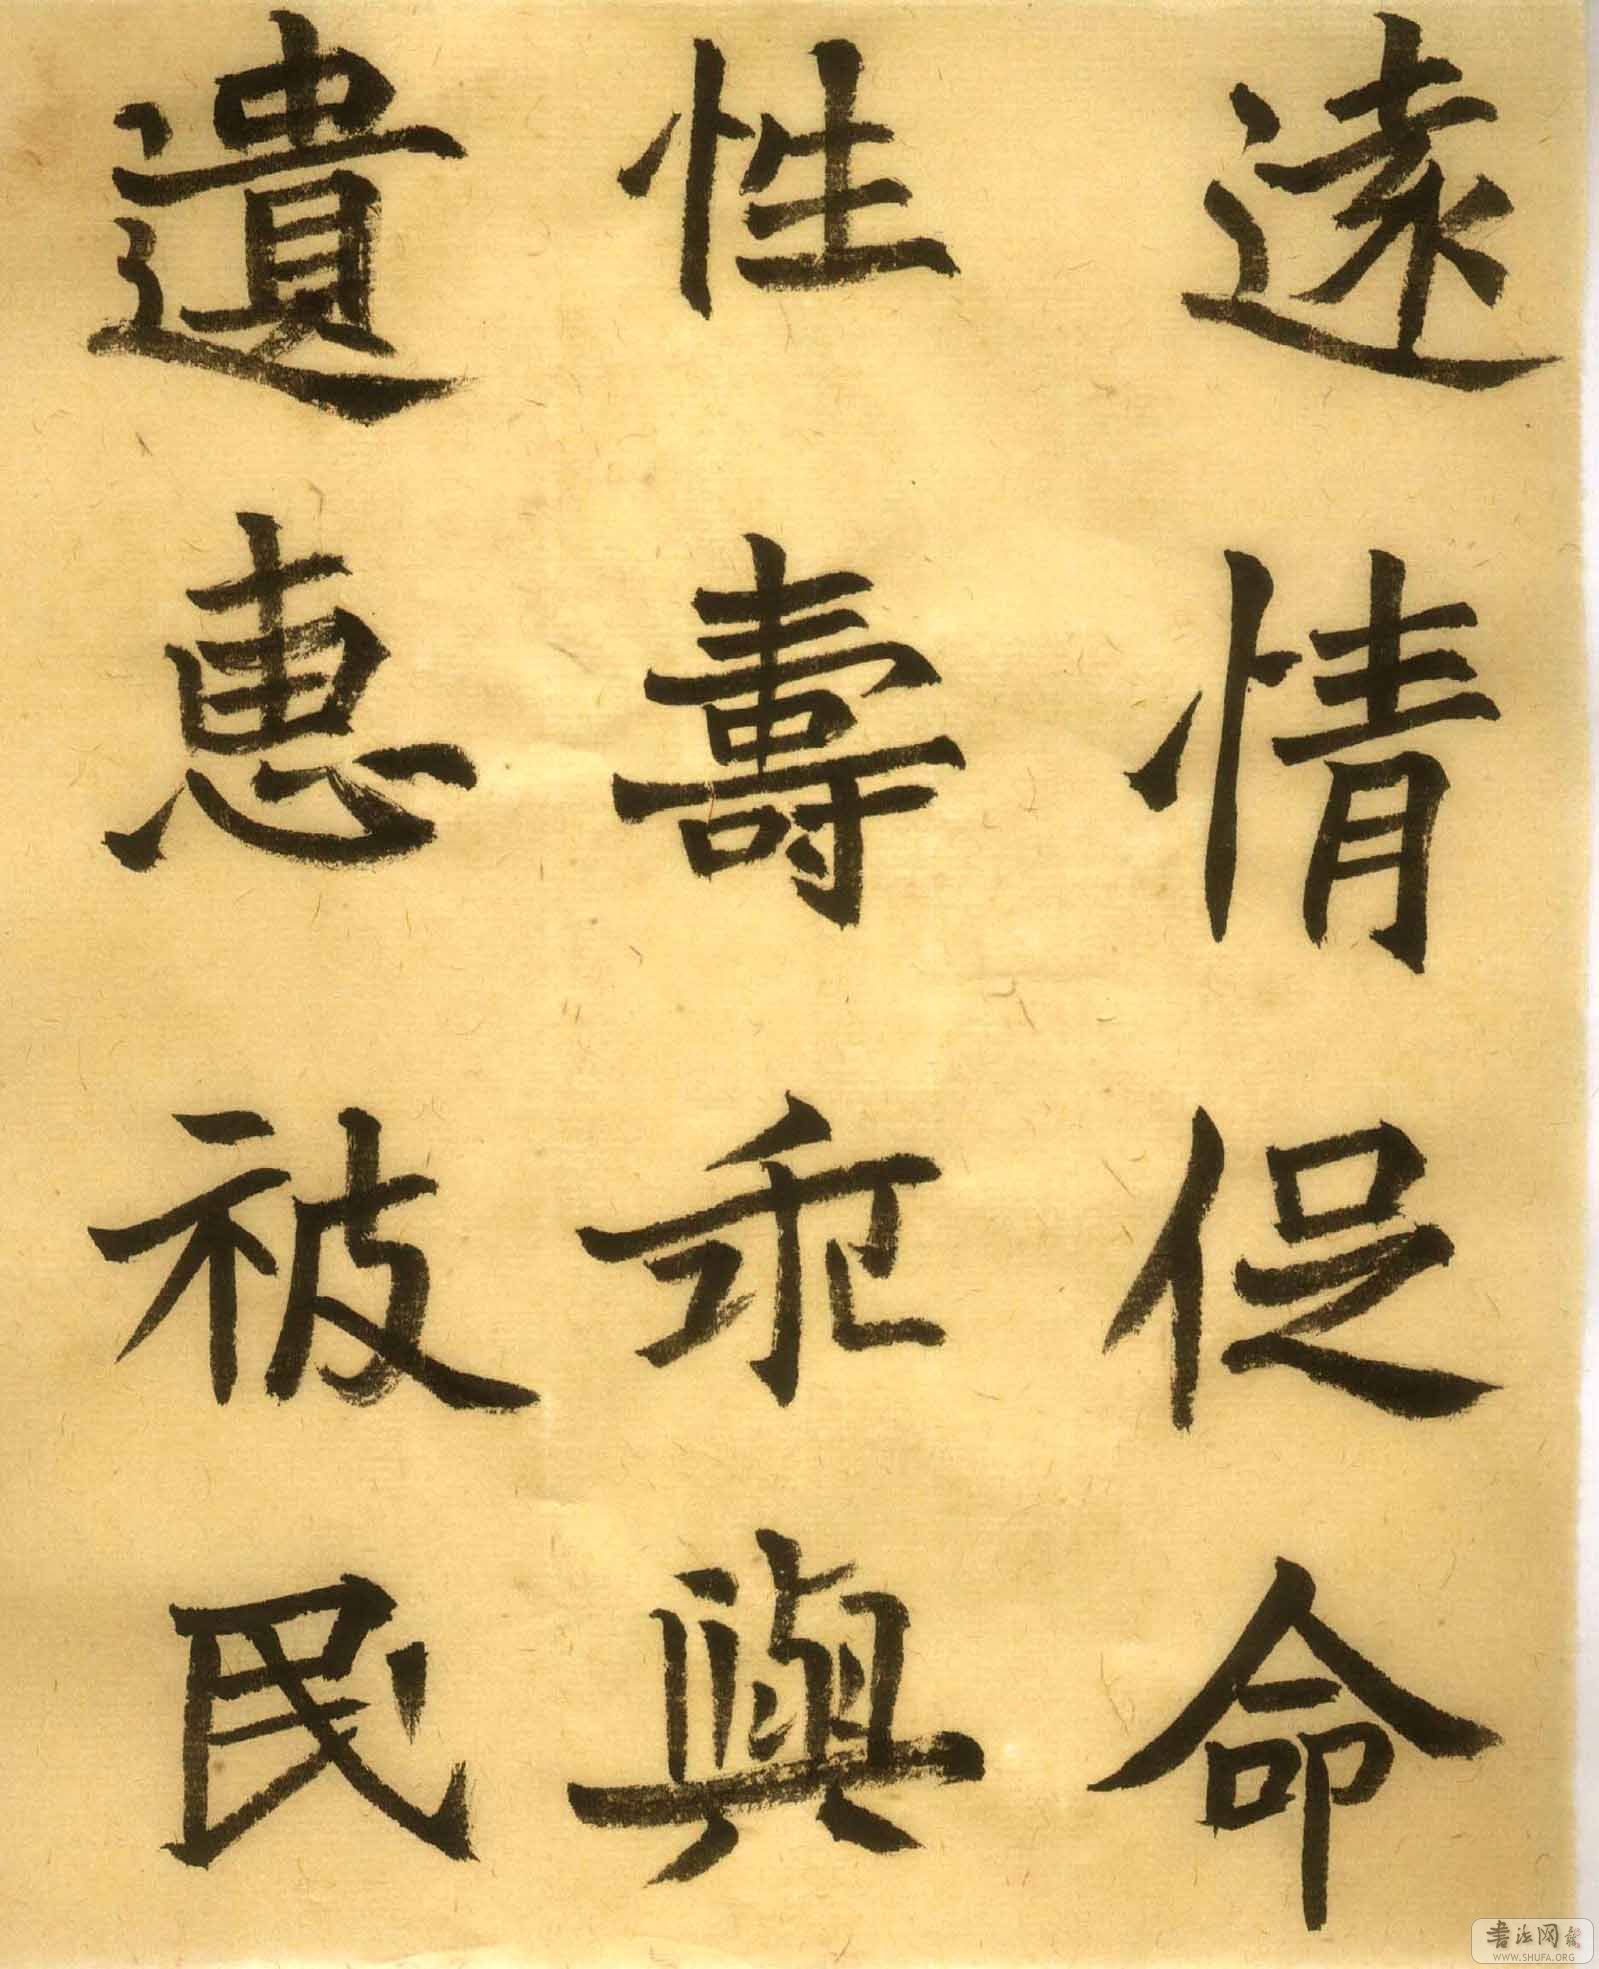 遠情促命
性壽乖與
遺惠被民
书法网
WWW.SHUFA.ORG